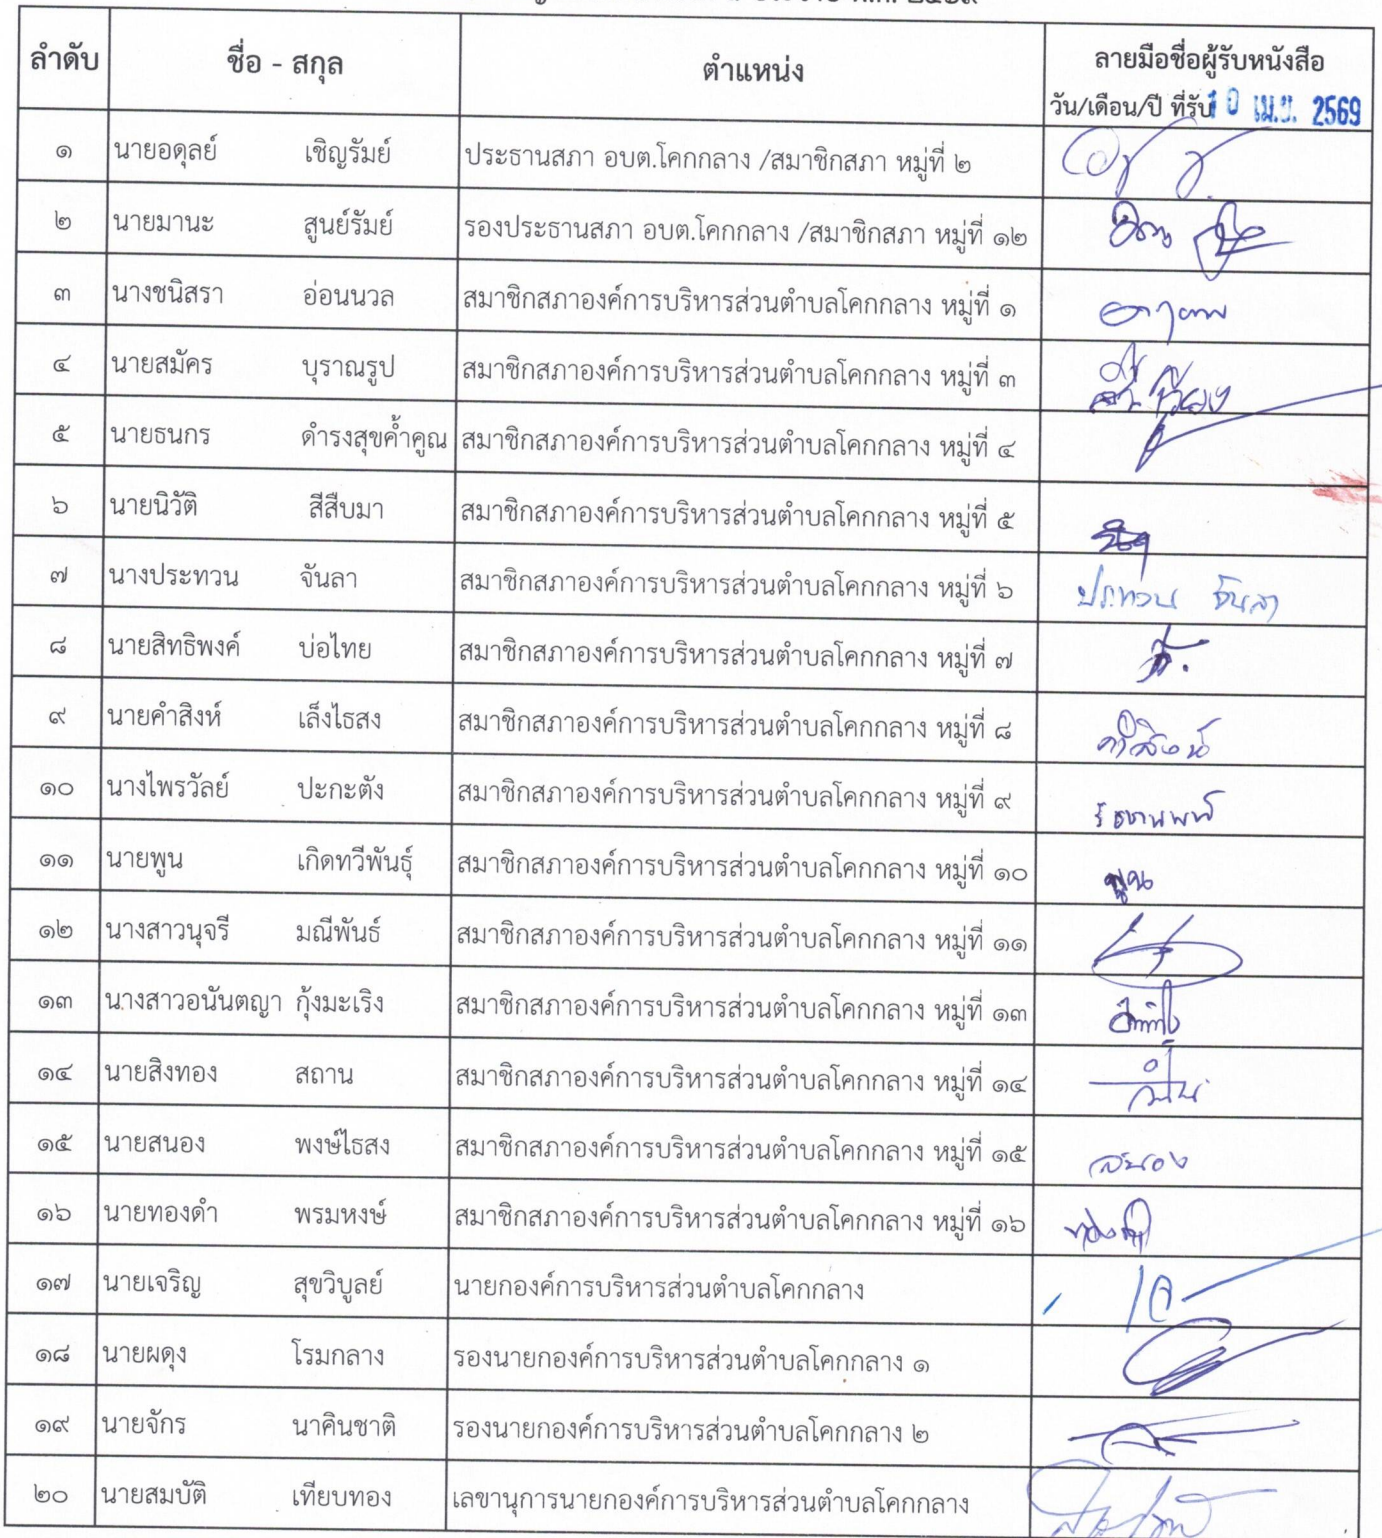 ลำดับ ชื่อ - สกุล ตำแหน่ง ลายมือชื่อผู้รับหนังสือ
วัน/เดือน/ปี ที่รับ 10 เม.ย. 2569
๑ นายอดุลย์ เชิญรัมย์ ประธานสภา อบต.โคกกลาง /สมาชิกสภา หมู่ที่ ๒
๒ นายมานะ สูนย์รัมย์ รองประธานสภา อบต.โคกกลาง /สมาชิกสภา หมู่ที่ ๑๒
๓ นางชนิสรา อ่อนนวล สมาชิกสภาองค์การบริหารส่วนตำบลโคกกลาง หมู่ที่ ๑
๔ นายสมัคร บุราณรูป สมาชิกสภาองค์การบริหารส่วนตำบลโคกกลาง หมู่ที่ ๓
๕ นายธนกร ดำรงสุขค้ำคูณ สมาชิกสภาองค์การบริหารส่วนตำบลโคกกลาง หมู่ที่ ๔
๖ นายนิวัติ สีสืบมา สมาชิกสภาองค์การบริหารส่วนตำบลโคกกลาง หมู่ที่ ๕
๗ นางประทวน จันลา สมาชิกสภาองค์การบริหารส่วนตำบลโคกกลาง หมู่ที่ ๖ ประทวน จันลา
๘ นายสิทธิพงค์ บ่อไทย สมาชิกสภาองค์การบริหารส่วนตำบลโคกกลาง หมู่ที่ ๗
๙ นายคำสิงห์ เล็งไธสง สมาชิกสภาองค์การบริหารส่วนตำบลโคกกลาง หมู่ที่ ๘ คำสิงห์
๑๐ นางไพรวัลย์ ปะกะตัง สมาชิกสภาองค์การบริหารส่วนตำบลโคกกลาง หมู่ที่ ๙
๑๑ นายพูน เกิดทวีพันธุ์ สมาชิกสภาองค์การบริหารส่วนตำบลโคกกลาง หมู่ที่ ๑๐ พูน
๑๒ นางสาวนุจรี มณีพันธ์ สมาชิกสภาองค์การบริหารส่วนตำบลโคกกลาง หมู่ที่ ๑๑
๑๓ นางสาวอนันตญา กุ้งมะเริง สมาชิกสภาองค์การบริหารส่วนตำบลโคกกลาง หมู่ที่ ๑๓
๑๔ นายสิงทอง สถาน สมาชิกสภาองค์การบริหารส่วนตำบลโคกกลาง หมู่ที่ ๑๔
๑๕ นายสนอง พงษ์ไธสง สมาชิกสภาองค์การบริหารส่วนตำบลโคกกลาง หมู่ที่ ๑๕ สนอง
๑๖ นายทองดำ พรมหงษ์ สมาชิกสภาองค์การบริหารส่วนตำบลโคกกลาง หมู่ที่ ๑๖ ทองดำ
๑๗ นายเจริญ สุขวิบูลย์ นายกองค์การบริหารส่วนตำบลโคกกลาง
๑๘ นายผดุง โรมกลาง รองนายกองค์การบริหารส่วนตำบลโคกกลาง ๑
๑๙ นายจักร นาคินชาติ รองนายกองค์การบริหารส่วนตำบลโคกกลาง ๒
๒๐ นายสมบัติ เทียบทอง เลขานุการนายกองค์การบริหารส่วนตำบลโคกกลาง